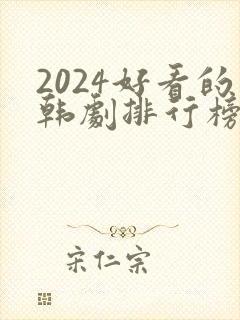 2024好看的
韩剧排行榜
宋仁宗